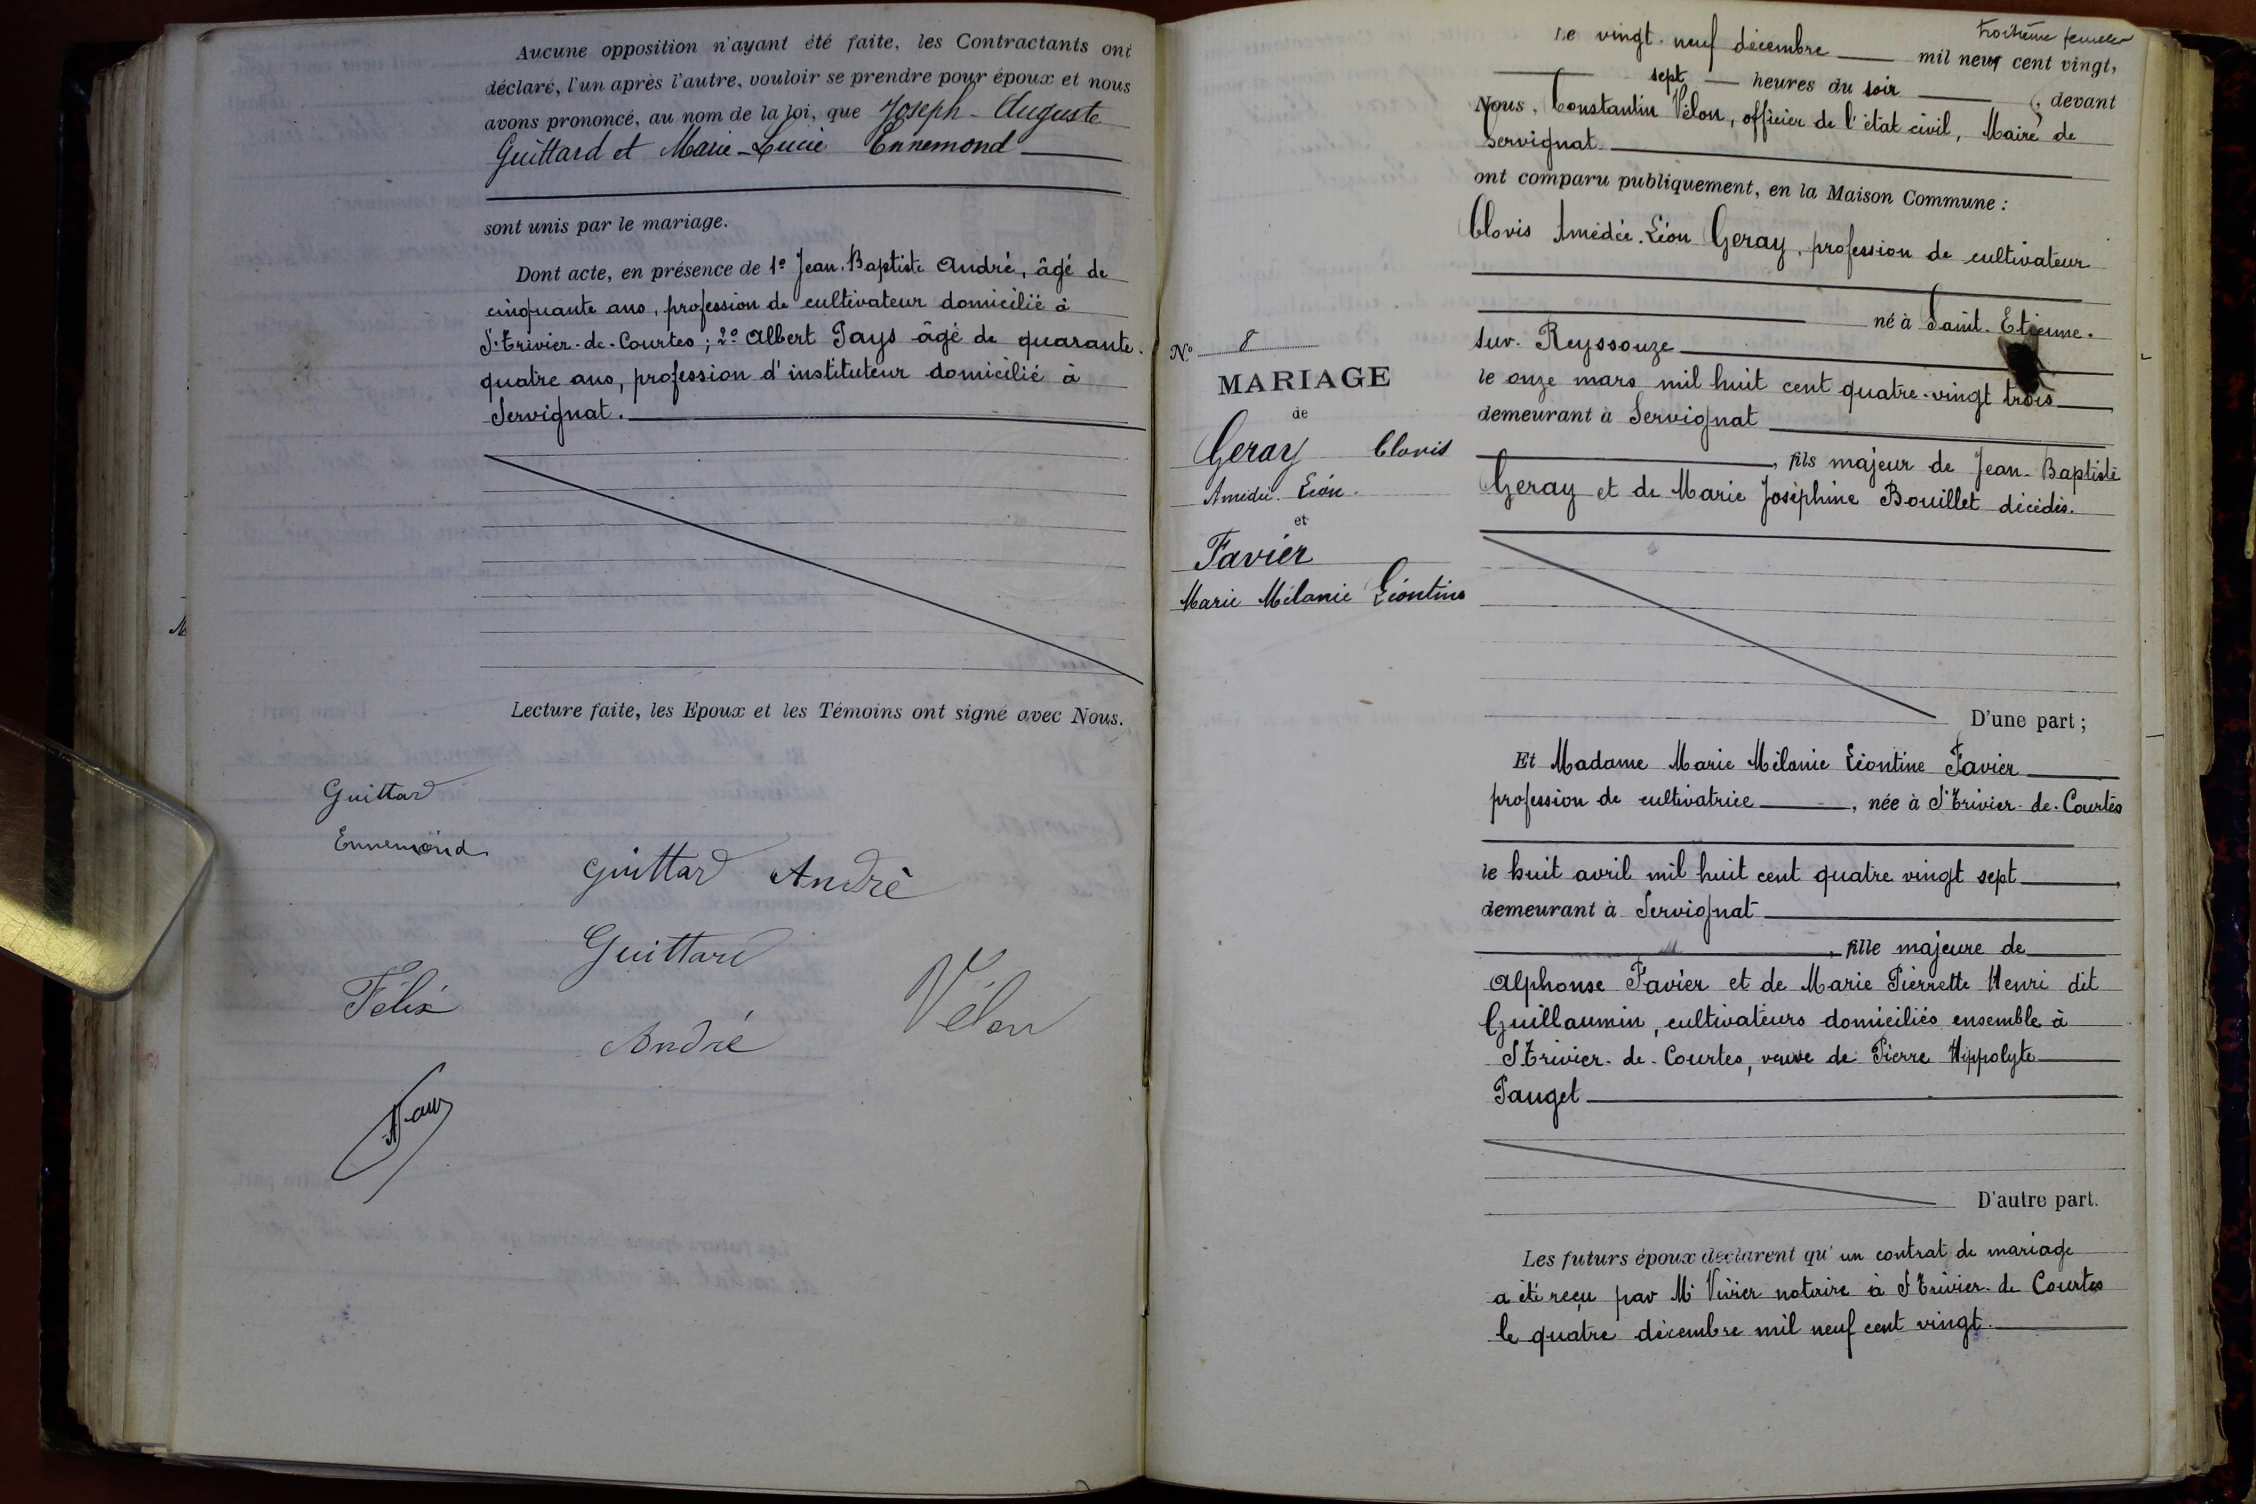 Aucune opposition n'ayant été faite, les Contractants ont
déclaré, l'un après l'autre, vouloir se prendre pour époux et nous
avons prononcé, au nom de la loi, que Joseph-Auguste
Guittard et Marie-Lucie Ennemond
sont unis par le mariage.
Dont acte, en présence de 1º Jean-Baptiste André, âgé de
cinquante ans, profession de cultivateur domicilié à
St-Trivier-de-Courtes ; 2º Albert Pays âgé de quarante-
quatre ans, profession d'instituteur domicilié à
Servignat.
Lecture faite, les Epoux et les Témoins ont signé avec Nous.
Guittard
Ennemond
Guittard André
Guittard
Félix
Vélon
André
Troisième feuillet
Le vingt-neuf décembre mil neuf cent vingt,
sept heures du soir, devant
Nous, Constantin Vélon, officier de l'état civil, Maire de
Servignat
ont comparu publiquement, en la Maison Commune :
Clovis Amédée-Léon Geray, profession de cultivateur
né à Saint-Etienne-
sur-Reyssouze
le onze mars mil huit cent quatre-vingt trois
demeurant à Servignat
, fils majeur de Jean-Baptiste
Geray et de Marie Joséphine Bouillet décédés.
D'une part ;
Nº 8
MARIAGE
de
Geray Clovis
Amédée-Léon.
et
Favier
Marie Mélanie Léontine
Et Madame Marie Mélanie Léontine Favier
profession de cultivatrice, née à St Trivier-de-Courtes
le huit avril mil huit cent quatre vingt sept,
demeurant à Servignat
, fille majeure de
Alphonse Favier et de Marie Pierrette Henri dit
Guillaumin, cultivateurs domiciliés ensemble à
St Trivier-de-Courtes, veuve de Pierre Hippolyte
Pauget
D'autre part.
Les futurs époux déclarent qu'un contrat de mariage
a été reçu par Me Vivier notaire à St Trivier-de Courtes
le quatre décembre mil neuf cent vingt.